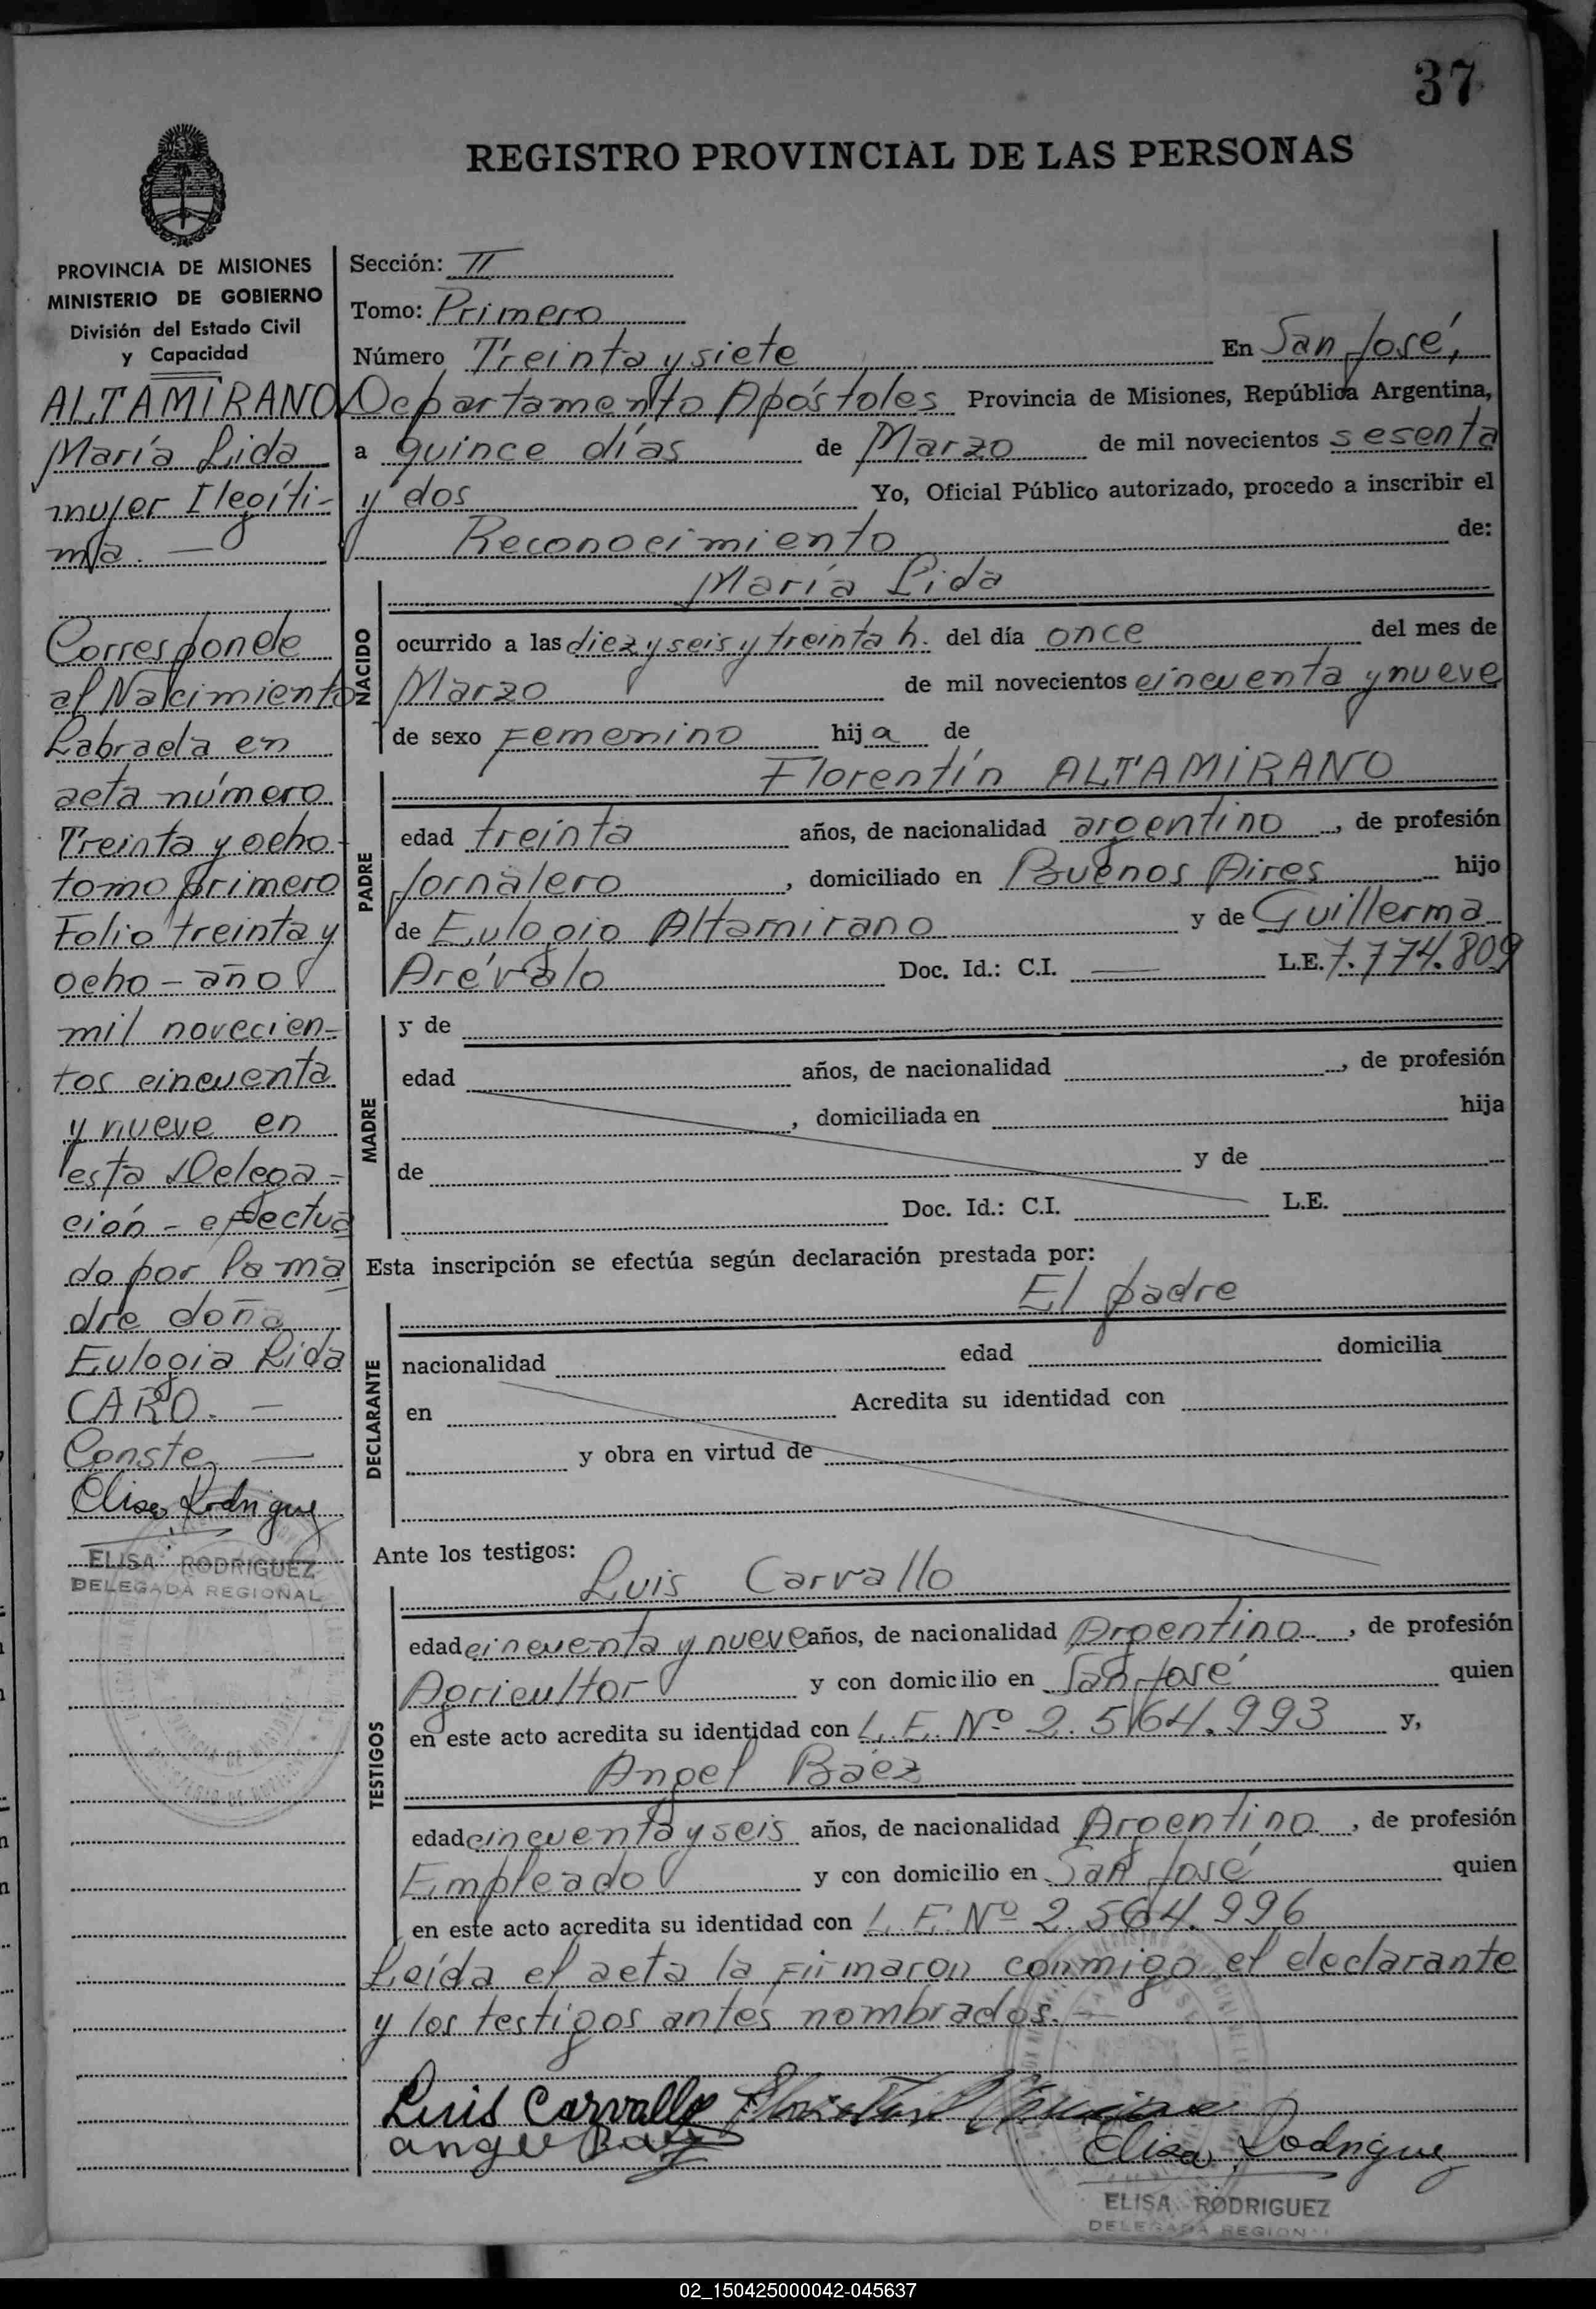 37
REGISTRO PROVINCIAL DE LAS PERSONAS
PROVINCIA DE MISIONES
MINISTERIO DE GOBIERNO
División del Estado Civil
y Capacidad
ALTAMIRANO
María Lida
mujer Ilegíti-
ma. —
Corresponde
al Nacimiento
Labrada en
acta número
Treinta y ocho
tomo primero
Folio treinta y
ocho - año
mil novecien-
tos cincuenta
y nueve en
esta Delega-
ción - efectua
do por la ma
dre doña
Eulogia Lida
CARO. —
Conste —
Elisa Rodriguez
ELISA RODRIGUEZ
DELEGADA REGIONAL
Sección: II
Tomo: Primero
Número Treinta y siete En San José,
Departamento Apóstoles Provincia de Misiones, República Argentina,
a quince días de Marzo de mil novecientos sesenta
y dos Yo, Oficial Público autorizado, procedo a inscribir el
Reconocimiento de:
María Lida
NACIDO
ocurrido a las diez y seis y treinta h. del día once del mes de
Marzo de mil novecientos cincuenta y nueve
de sexo Femenino hija de
Florentín ALTAMIRANO
PADRE
edad treinta años, de nacionalidad argentino, de profesión
Jornalero, domiciliado en Buenos Aires hijo
de Eulogio Altamirano y de Guillerma
Arévalo Doc. Id.: C.I. — L.E. 7.774.809
MADRE
y de
edad años, de nacionalidad , de profesión
, domiciliada en hija
de y de
Doc. Id.: C.I. L.E.
Esta inscripción se efectúa según declaración prestada por:
El padre
DECLARANTE
nacionalidad edad domicilia
en Acredita su identidad con
y obra en virtud de
Ante los testigos:
Luis Carvallo
TESTIGOS
edad cincuenta y nueve años, de nacionalidad Argentino, de profesión
Agricultor y con domicilio en San José quien
en este acto acredita su identidad con L.E. Nº 2.564.993 y,
Angel Báez
edad cincuenta y seis años, de nacionalidad Argentino, de profesión
Empleado y con domicilio en San José quien
en este acto acredita su identidad con L.E. Nº 2.564.996
Leída el acta la firmaron conmigo el declarante
y los testigos antes nombrados. —
Luis Carvallo
angel Baez
Elisa Rodriguez
ELISA RODRIGUEZ
DELEGADA REGION
02_150425000042-045637